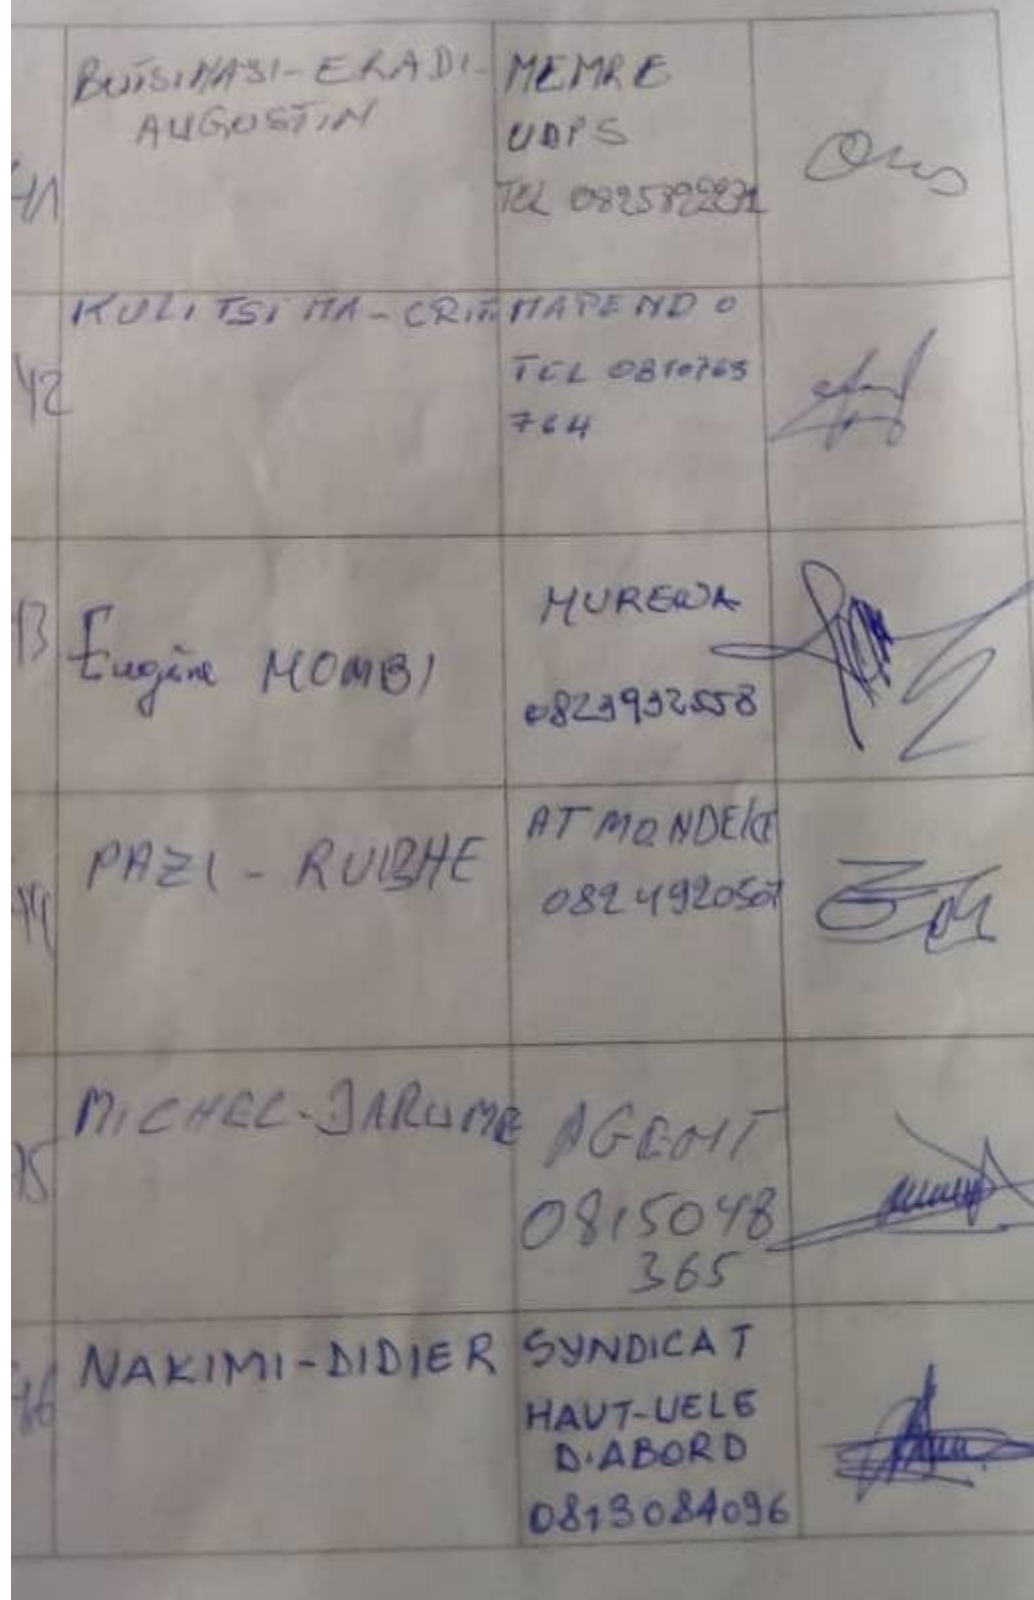 41
BUTSIMASI-ERADI-
AUGUSTIN
MEMRE
UDPS
TEL
42
KULITSI MA-CRIT
MAPENDO
TEL 0810763
764
43
Eugène MOMBI
MUREWA
0823932558
44
PAZI - RUBHE
AT MONDEKE
0824920507
45
MICHEL-JARUME
AGENT
0815048
365
46
NAKIMI-DIDIER
SYNDICAT
HAUT-UELE
D'ABORD
0813084096